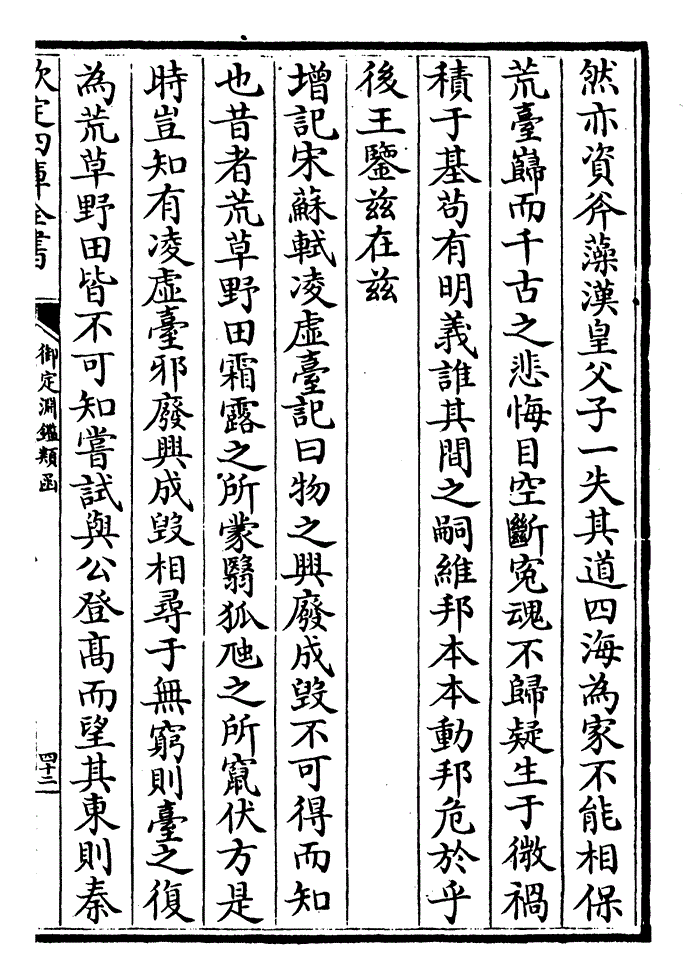 然亦資斧藻漢皇父子一失其道四海為家不能相保
荒臺巋而千古之悲悔目空斷寃魂不歸疑生于微禍
積于基苟有明義誰其間之嗣維邦本本動邦危於乎
後王鑒兹在兹
增記宋蘇軾凌虚臺記曰物之興廢成毁不可得而知
也昔者荒草野田霜露之所蒙翳狐虺之所竄伏方是
時豈知有凌虚臺邪廢興成毁相尋于無窮則臺之復
為荒草野田皆不可知嘗試與公登髙而望其東則秦
欽定四庫全書
御定淵鑑類函
四十三